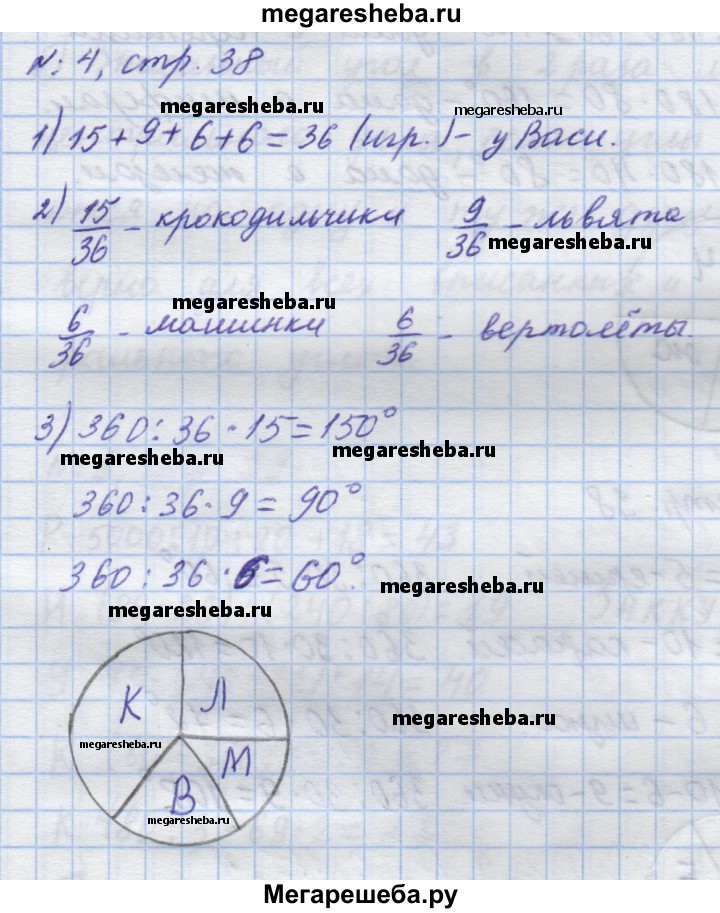 megaresheba.ru
№ 4, стр. 38
megaresheba.ru megaresheba.ru
1) 15 + 9 + 6 + 6 = 36 (игр.) - у Васи.
2) 15/36 - крокодильчики 9/36 - львята
megaresheba.ru
megaresheba.ru
6/36 - машинки 6/36 - вертолёты.
3) 360 : 36 · 15 = 150°
megaresheba.ru megaresheba.ru
360 : 36 · 9 = 90°
360 : 36 · 6 = 60°.
megaresheba.ru
megaresheba.ru
К Л
megaresheba.ru megaresheba.ru
М
В
megaresheba.ru
Мегарешеба.ру